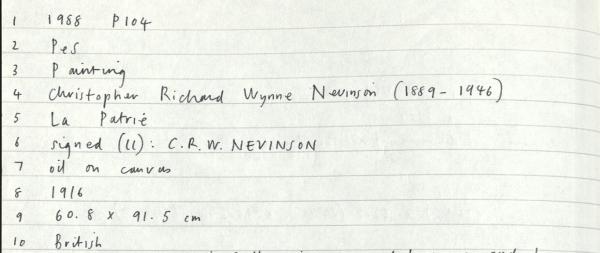 1 1988 P104
2 Pes
3 Painting
4 Christopher Richard Wynne Nevinson (1889-1946)
5 La Patrié
6 signed (ll): C.R.W. NEVINSON
7 oil on canvas
8 1916
9 60.8 x 91.5 cm
10 British